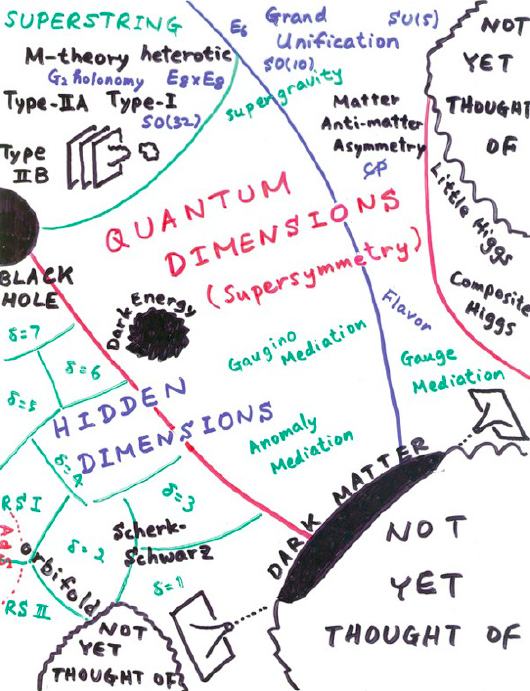 SUPERSTRING
M-theory heterotic
G2 holonomy E8xE8
Type-IIA Type-I
SO(32)
Type
IIB
E6
Grand
Unification
SU(5)
SO(10)
supergravity
Matter
Anti-matter
Asymmetry
CP
NOT
YET
THOUGHT
OF
Little Higgs
Composite
Higgs
QUANTUM
DIMENSIONS
(Supersymmetry)
BLACK
HOLE
Dark Energy
Flavor
Gaugino
Mediation
Gauge
Mediation
Anomaly
Mediation
HIDDEN
DIMENSIONS
δ=7
δ=6
δ=5
δ=4
δ=3
δ=2
δ=1
Scherk-
Schwarz
RS I
AdS
RS II
orbifold
DARK MATTER
NOT
YET
THOUGHT OF
NOT
YET
THOUGHT OF